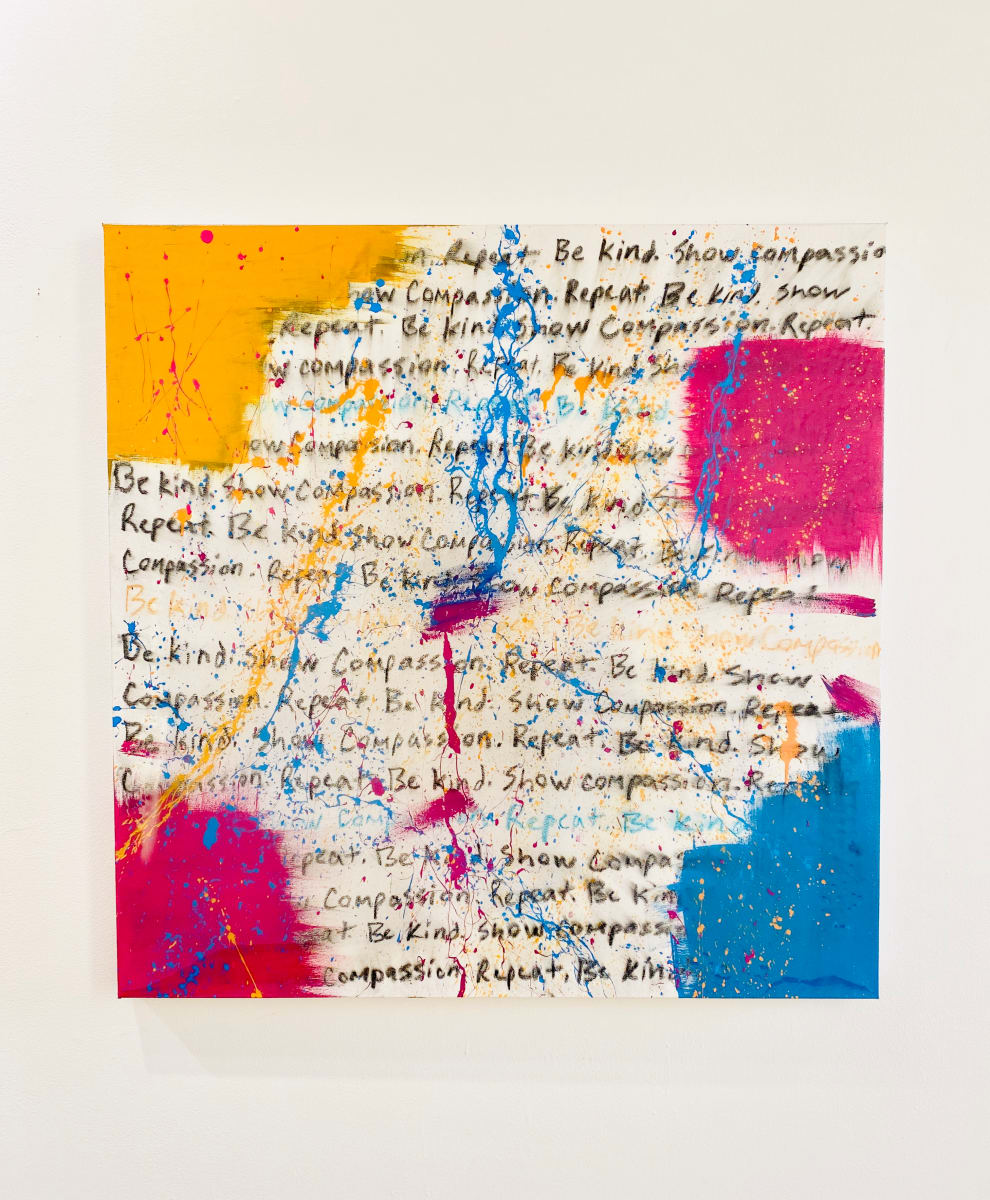 Repeat Be Kind. Show compassio
how Compassion. Repeat. Be kind. Show
Repeat. Be kind. Show Compassion. Repeat
w compassion. Repeat. Be kind. Sho
ow Compassion. Repeat. Be kind
how Compassion. Repeat. Be kind. Show
Be kind. Show compassion. Repeat. Be kind S
Repeat. Be kind. Show Compassion. Repeat. Be kind. Show
Compassion. Repeat. Be Kind. Show Compassion. Repeat
Be kind. Be kind. Show Compassion
Be kind. Show Compassion. Repeat. Be kind. Show
Compassion. Repeat. Be kind. Show Compassion. Repeat
Be kind. Show Compassion. Repeat. Be kind. Show
Compassion. Repeat. Be kind. Show compassion. Repeat
ow Comp on. Repeat. Be kind
repeat. Be kind. Show Compas
w Compassion. Repeat. Be Kin
at Be kind. Show compassio
compassion. Repeat. Be kind